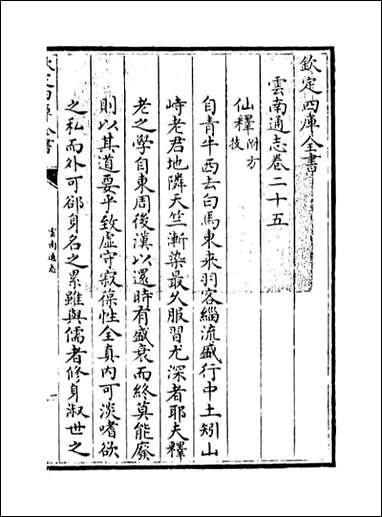 欽定四庫全書
雲南通志卷二十五
仙釋附方技
自青牛西去白馬東来羽客緇流盛行中土矧山
峙老君地隣天竺漸染最久服習尤深者耶夫釋
老之學自東周後漢以還時有盛衰而終莫能廢
則以其道要乎致虚守寂葆性全真内可淡嗜欲
之私而外可郤身名之累雖與儒者修身淑世之
雲南通志